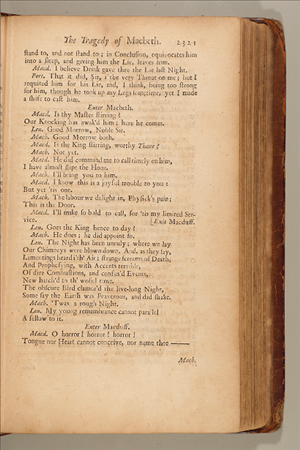 The Tragedy of Macbeth. 2321
stand to, and not stand to; in Conclusion, equivocates him
into a sleep, and giving him the Lie, leaves him.
Macd. I believe Drink gave thee the Lie last Night.
Port. That it did, Sir, i'the very Throat on me; but I
requited him for his Lie, and, I think, being too strong
for him, though he took up my Legs sometime, yet I made
a shift to cast him.
Enter Macbeth.
Macd. Is thy Master stirring?
Our Knocking has awak'd him; here he comes.
Len. Good Morrow, Noble Sir.
Macb. Good Morrow both.
Macd. Is the King stirring, worthy Thane?
Macb. Not yet.
Macd. He did command me to call timely on him,
I have almost slipt the Hour.
Macb. I'll bring you to him.
Macd. I know this is a joyful trouble to you:
But yet 'tis one.
Macb. The labour we delight in, Physick's pain;
This is the Door.
Macd. I'll make so bold to call, for 'tis my limited Ser-
vice. [Exit Macduff.
Len. Goes the King hence to day?
Macb. He does; he did appoint so.
Len. The Night has been unruly; where we lay
Our Chimneys were blown down. And, as they say,
Lamentings heard i'th' Air; strange Screams of Death,
And Prophesying, with Accents terrible,
Of dire Combustions, and confus'd Events,
New hatch'd to th' woful time.
The obscure Bird clamor'd the live-long Night,
Some say the Earth was Feaverous, and did shake.
Macb. 'Twas a rough Night.
Len. My young remembrance cannot parallel
A fellow to it.
Enter Macduff.
Macd. O horror! horror! horror!
Tongue nor Heart cannot conceive, nor name thee ——
Macb.